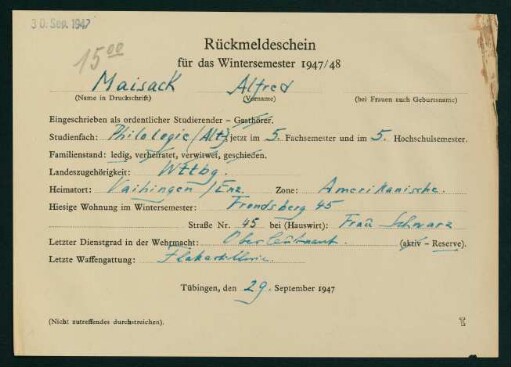 30. Sep. 1947
15.00
Rückmeldeschein
für das Wintersemester 1947/48
Maisack Alfred
(Name in Druckschrift) (Vorname) (bei Frauen auch Geburtsname)
Eingeschrieben als ordentlicher Studierender – Gasthörer.
Studienfach: Philologie (Alt) jetzt im 5. Fachsemester und im 5. Hochschulsemester.
Familienstand: ledig, verheiratet, verwitwet, geschieden.
Landeszugehörigkeit: Wttbg.
Heimatort: Vaihingen/Enz. Zone: Amerikanische.
Hiesige Wohnung im Wintersemester: Frondsberg 45
Straße Nr. 45 bei (Hauswirt): Frau Schwarz
Letzter Dienstgrad in der Wehrmacht: Oberleutnant. (aktiv – Reserve).
Letzte Waffengattung: Flakartillerie.
Tübingen, den 29. September 1947
(Nicht zutreffendes durchstreichen).